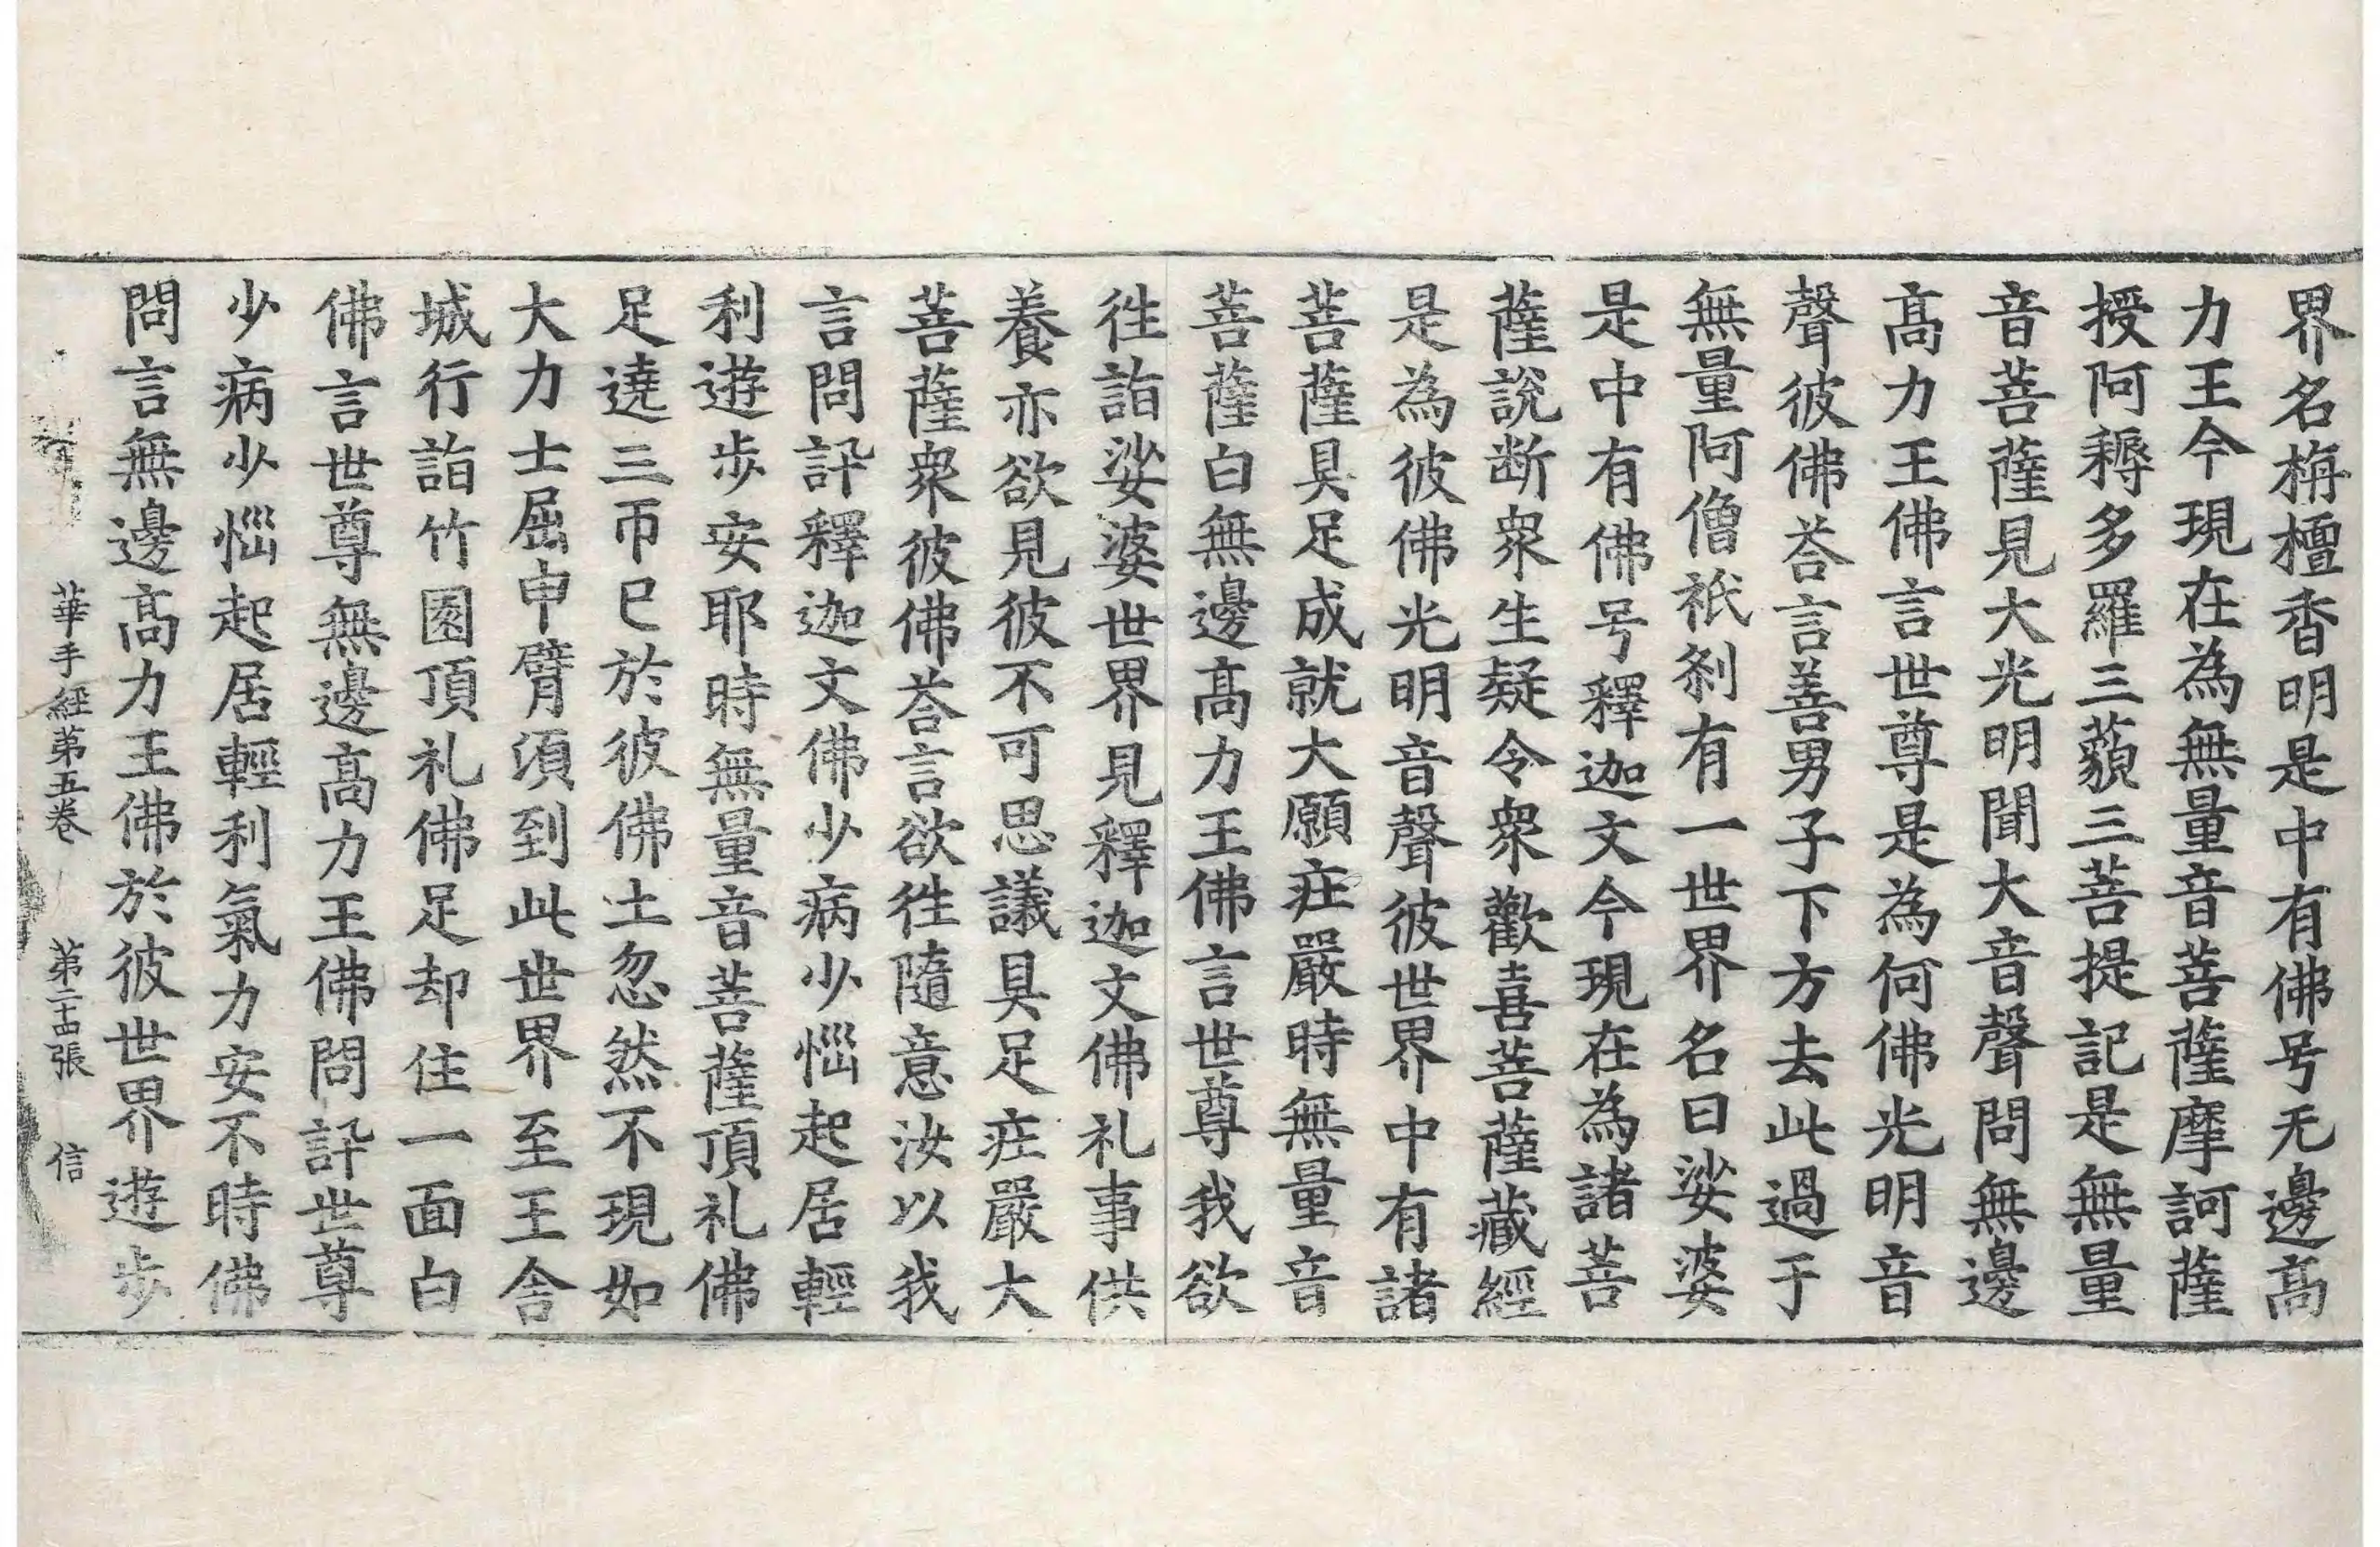 界名栴檀香明是中有佛号无邊高
力王今現在為無量音菩薩摩訶薩
授阿耨多羅三藐三菩提記是無量
音菩薩見大光明聞大音聲問無邊
高力王佛言世尊是為何佛光明音
聲彼佛荅言善男子下方去此過于
無量阿僧祇刹有一世界名曰娑婆
是中有佛号釋迦文今現在為諸菩
薩說断衆生疑令衆歡喜菩薩藏經
是為彼佛光明音聲彼世界中有諸
菩薩具足成就大願㽵嚴時無量音
菩薩白無邊高力王佛言世尊我欲
徃詣娑婆世界見釋迦文佛礼事供
養亦欲見彼不可思議具足㽵嚴大
菩薩衆彼佛荅言欲徃隨意汝以我
言問訊釋迦文佛少病少惱起居輕
利遊步安耶時無量音菩薩頂礼佛
足遶三帀已於彼佛土忽然不現如
大力士屈申臂須到此世界至王舍
城行詣竹園頂礼佛足却住一面白
佛言世尊無邊高力王佛問訊世尊
少病少惱起居輕利氣力安不時佛
問言無邊高力王佛於彼世界遊步
華手經第五卷 第二十四張 信